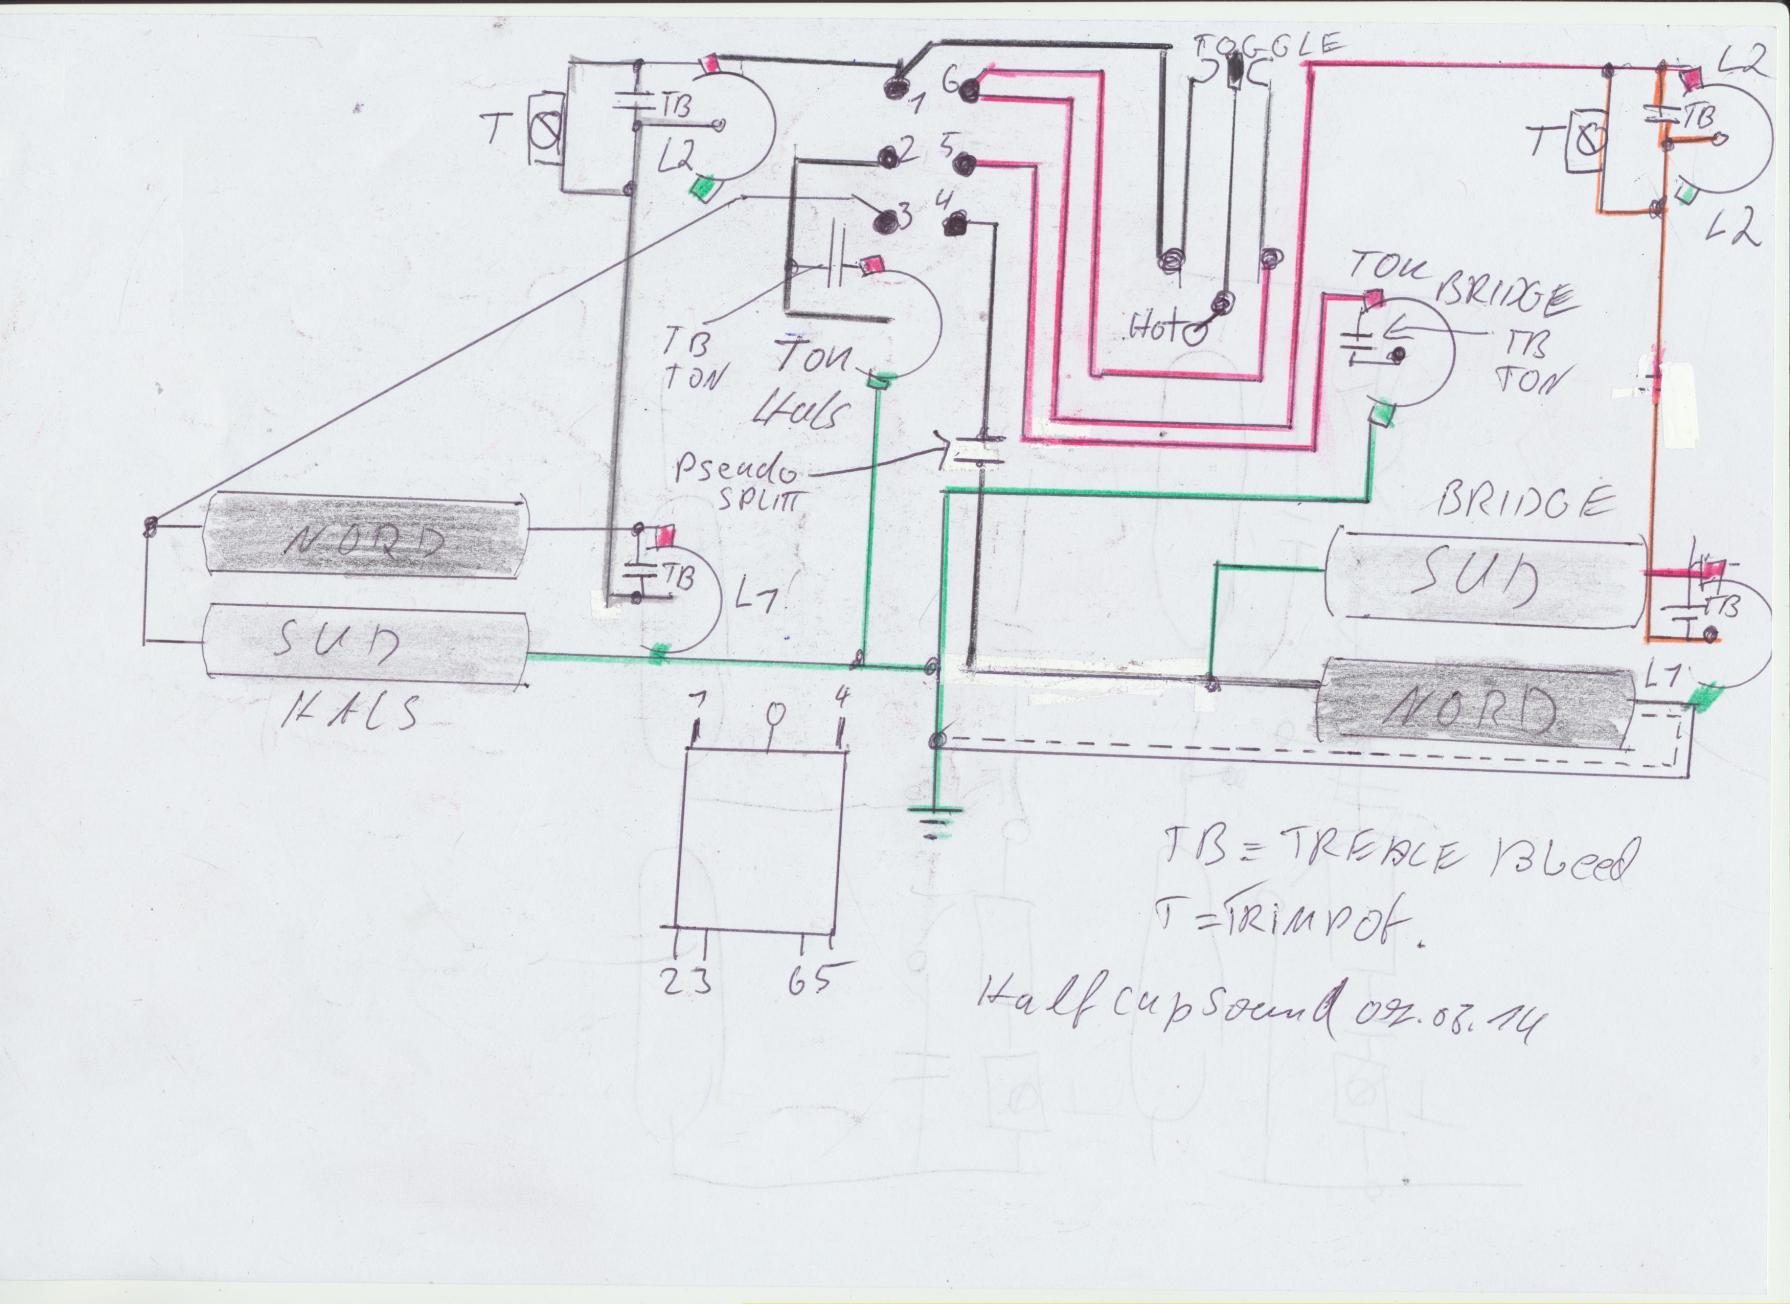 TOGGLE
L2
T
TB
L2
1
6
2
5
3
4
T
TB
L2
TB
TON
TON
Hals
Hot
TON BRIDGE
TB
TON
Pseudo
SPLITT
BRIDGE
NORD
TB
L1
SUD
TB
SUD
HALS
L1
NORD
1
4
23
65
TB = TREABLE Bleed
T = TRIMPOT.
Half cap sound 02.03.14